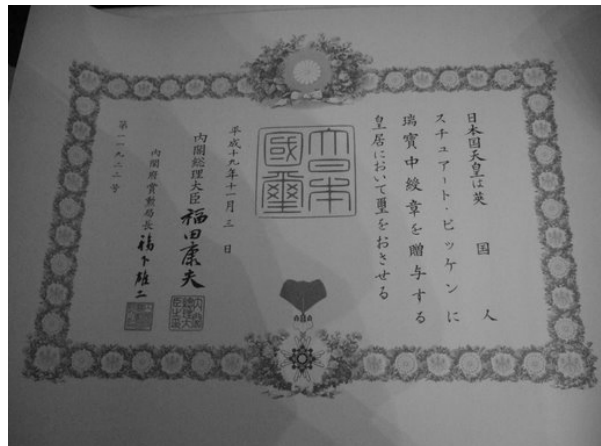 日本国天皇は英国人
スチュアート・ピッケンに
瑞寶中綬章を贈与する
皇居において璽をおさせる
大日本國璽
平成十九年十一月三日
内閣総理大臣 福田康夫
内閣府賞勲局長 福下雄二
第一一九二二号